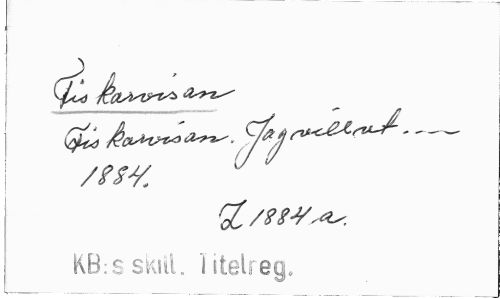 Fiskarvisan
Fiskarvisan. Jag vill ut ...
1884.
Z 1884 a.
KB:s skill. Titelreg.